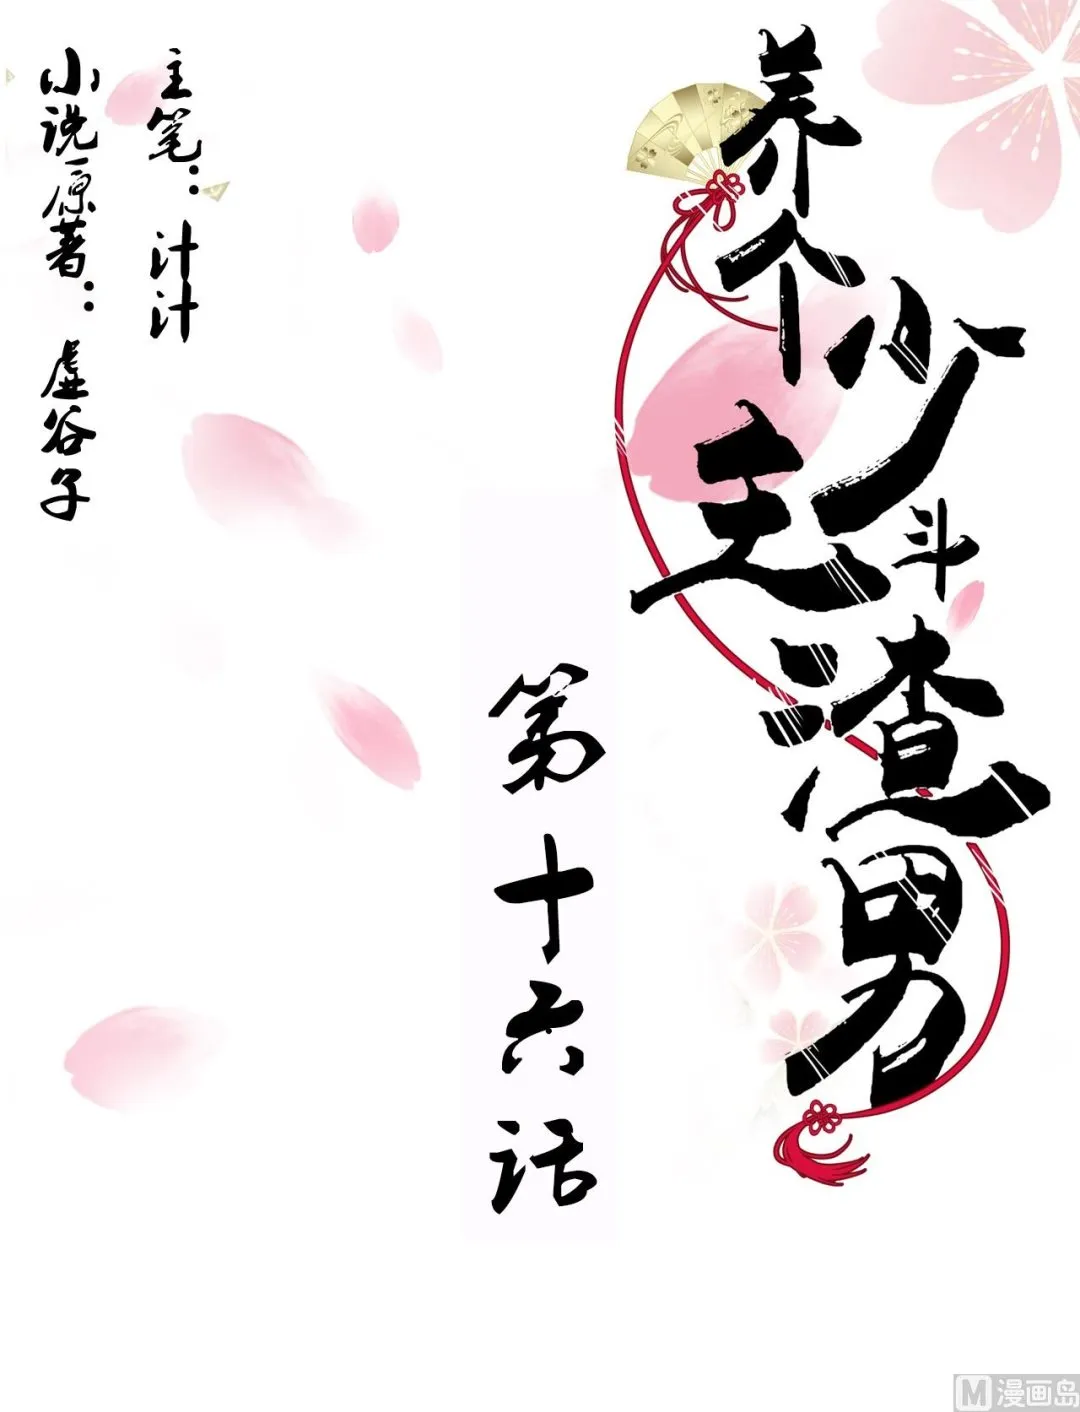 养个少主斗渣男
第十六话
主笔：汁汁
小说原著：虚谷子
漫画岛